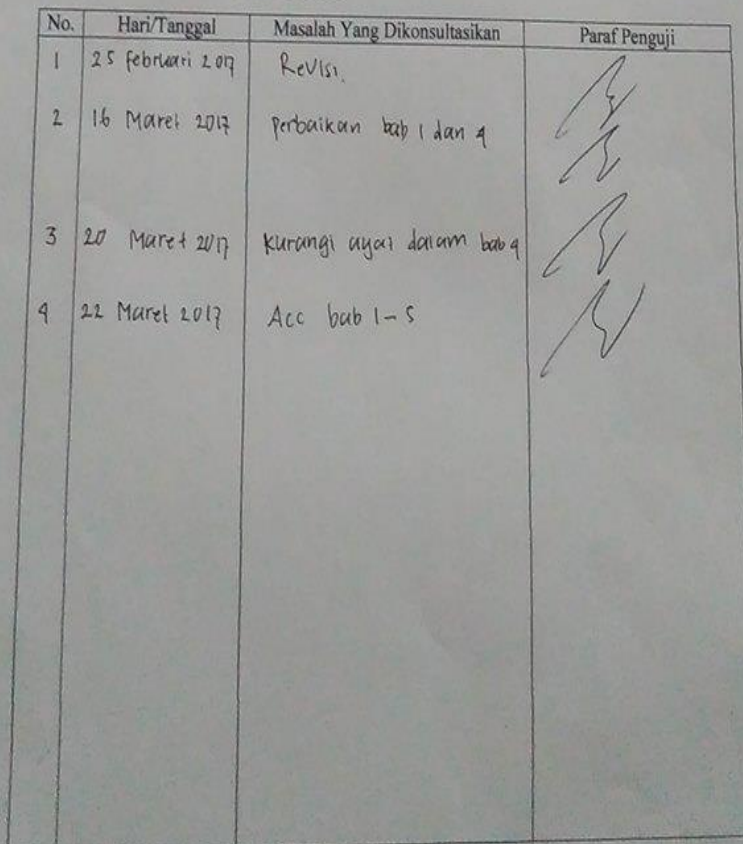 No. Hari/Tanggal Masalah Yang Dikonsultasikan Paraf Penguji
1 25 februari 2017 Revisi.
2 16 Maret 2017 Perbaikan bab 1 dan 4
3 20 Maret 2017 kurangi ayat dalam bab 4
4 22 Maret 2017 Acc bab 1-5